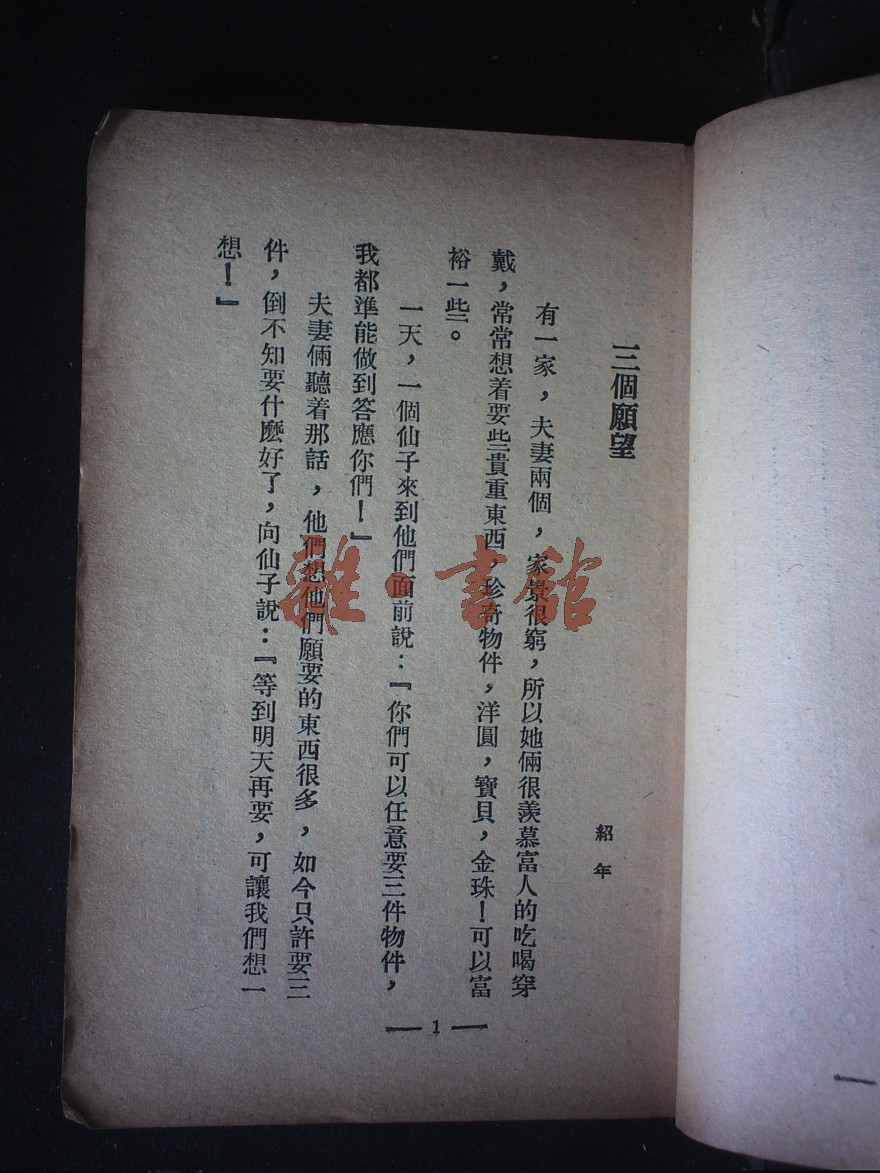 三個願望
紹年
有一家，夫妻兩個，家景很窮，所以她倆很羨慕富人的吃喝穿
戴，常常想着要些貴重東西，珍奇物件，洋圓，寶貝，金珠！可以富
裕一些。
一天，一個仙子來到他們面前說：『你們可以任意要三件物件，
我都準能做到答應你們！』
夫妻倆聽着那話，他們想他們願要的東西很多，如今只許要三
件，倒不知要什麽好了，向仙子說：『等到明天再要，可讓我們想一
想！』
1
雜·書館